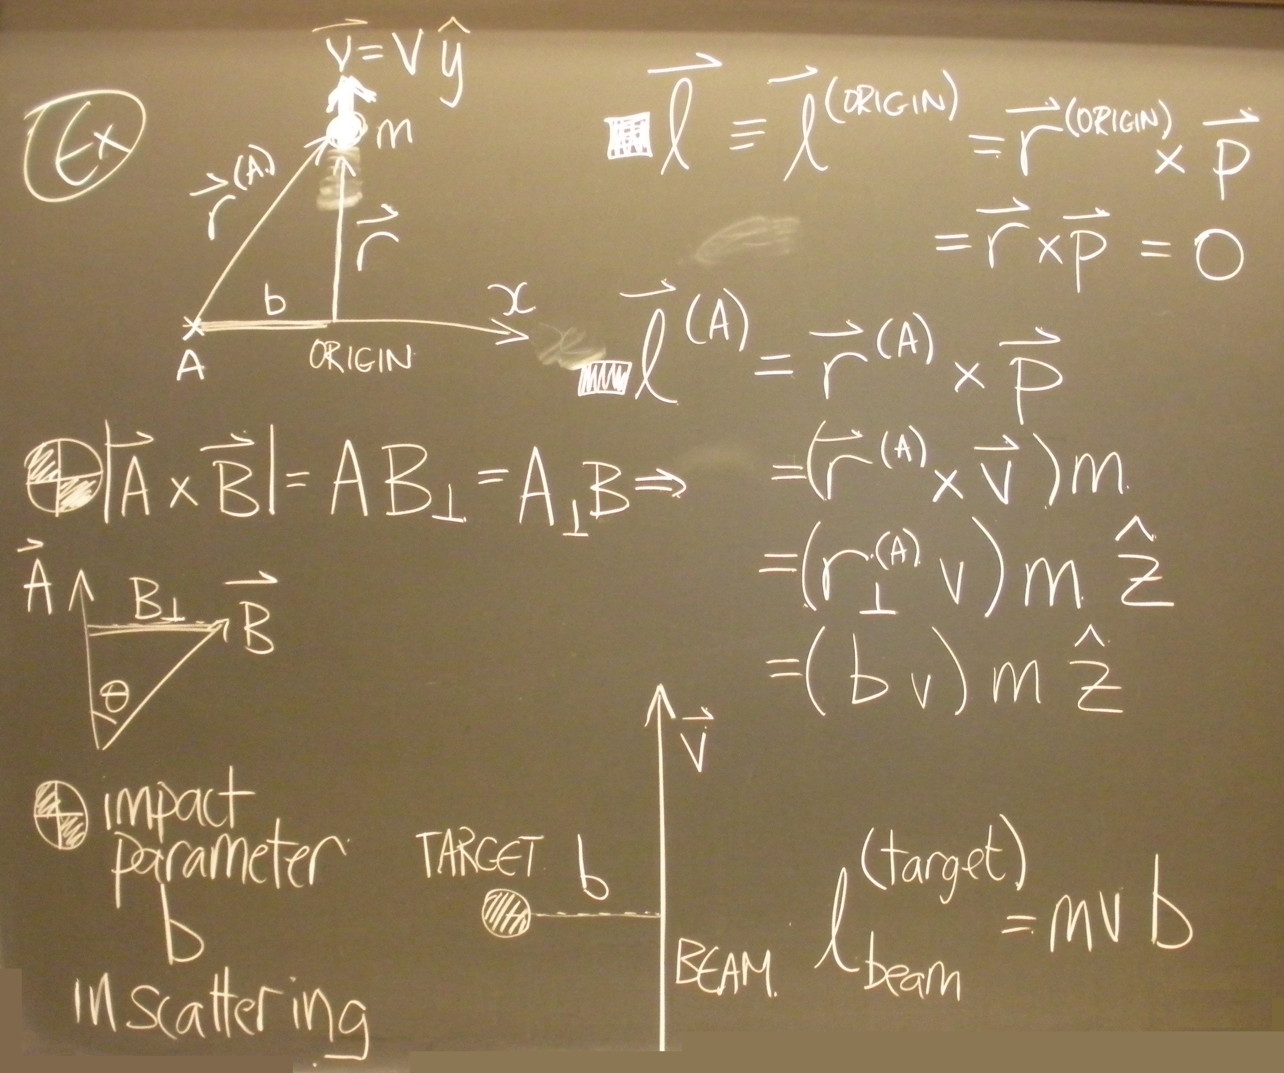 Ex
v⃗ = v ŷ
m
r⃗^(A)
r⃗
b
x
A
ORIGIN
l⃗ ≡ l⃗^(ORIGIN) = r⃗^(ORIGIN) × p⃗
= r⃗ × p⃗ = 0
l⃗^(A) = r⃗^(A) × p⃗
= (r⃗^(A) × v⃗) m
= (r_⊥^(A) v) m ẑ
= (b v) m ẑ
|A⃗ × B⃗| = A B_⊥ = A_⊥ B ⇒
A⃗
B_⊥
B⃗
θ
impact
parameter
b
in scattering
TARGET
b
v⃗
BEAM
l_beam^(target) = m v b